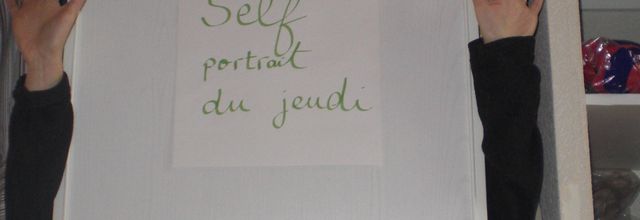 Self
portrait
du jeudi